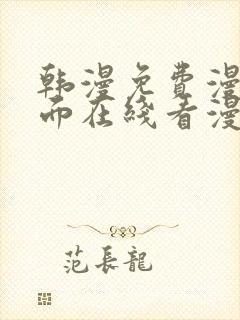 韩漫免费漫
而在线看漫
范長龍